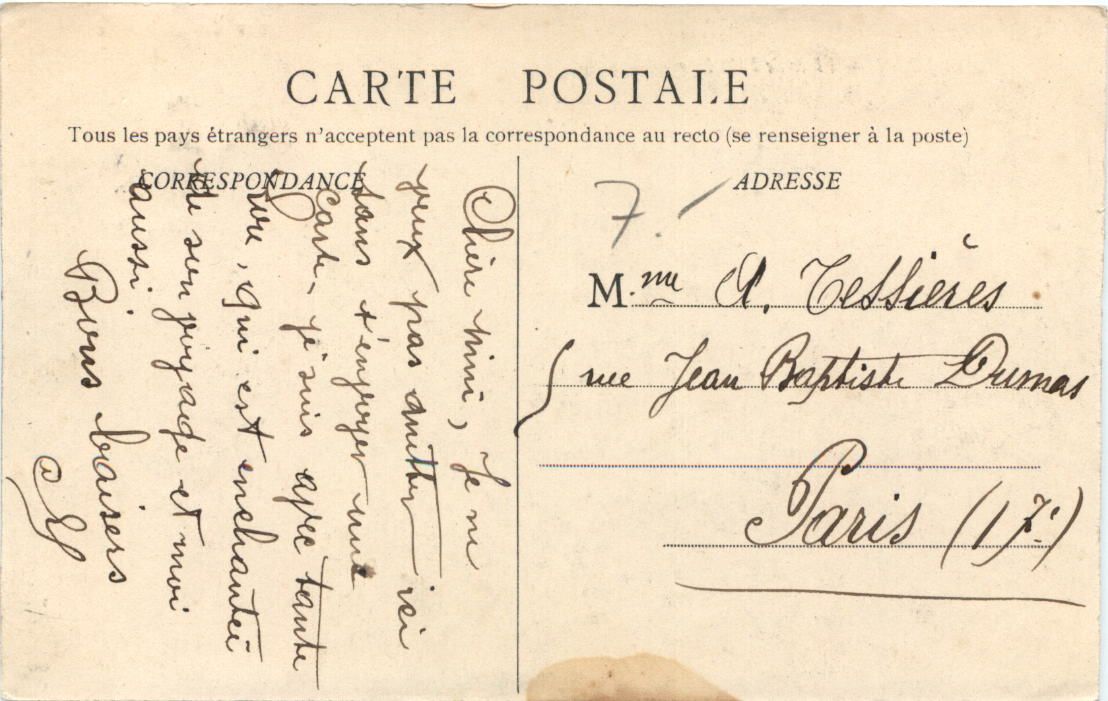 CARTE POSTALE
Tous les pays étrangers n'acceptent pas la correspondance au recto (se renseigner à la poste)
CORRESPONDANCE
ADRESSE
Chère Mimi, Je ne
peux pas quitter ici
sans t'envoyer une
carte. je suis avec tante
qui est enchantée
de son voyage et moi
aussi.
Bons baisers
7.
Mme A. Tessières
rue Jean Baptiste Dumas
Paris (17e)